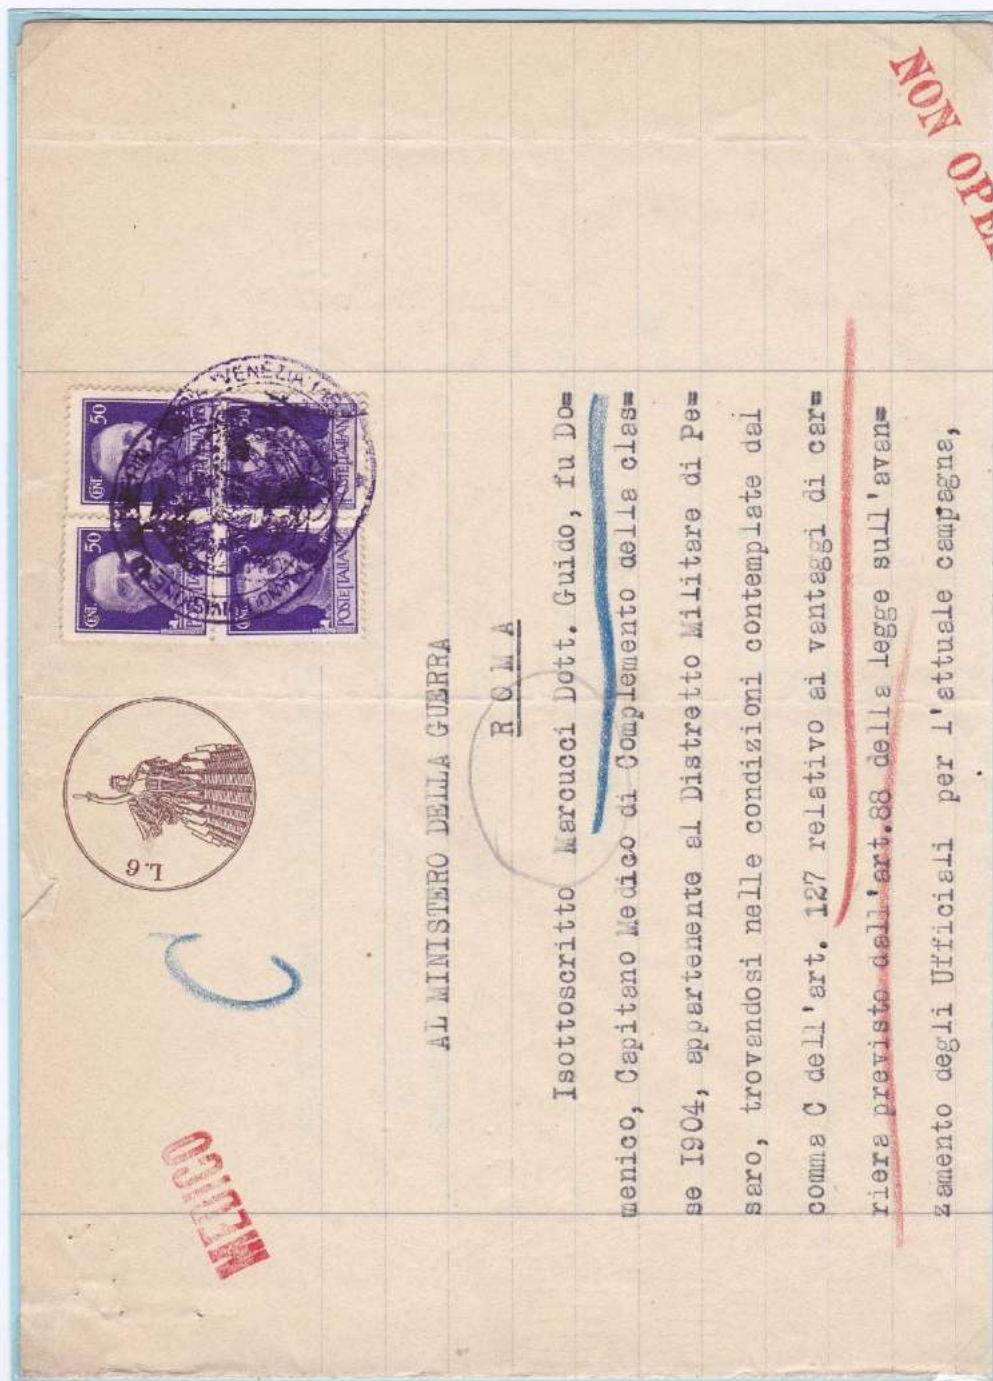 MEDICO
C
L.6
CENT. 50
CENT. 50
POSTE ITALIANE
POSTE ITALIANE
VENEZIA
NON OPE
AL MINISTERO DELLA GUERRA
R O M A
Isottoscritto Marcucci Dott. Guido, fu Do=
menico, Capitano Medico di Complemento della clas=
se I904, appartenente al Distretto Militare di Pe=
saro, trovandosi nelle condizioni contemplate dal
comma C dell'art. 127 relativo ai vantaggi di car=
riera previsto dall'art.88 della legge sull'avan=
zamento degli Ufficiali per l'attuale campagna,